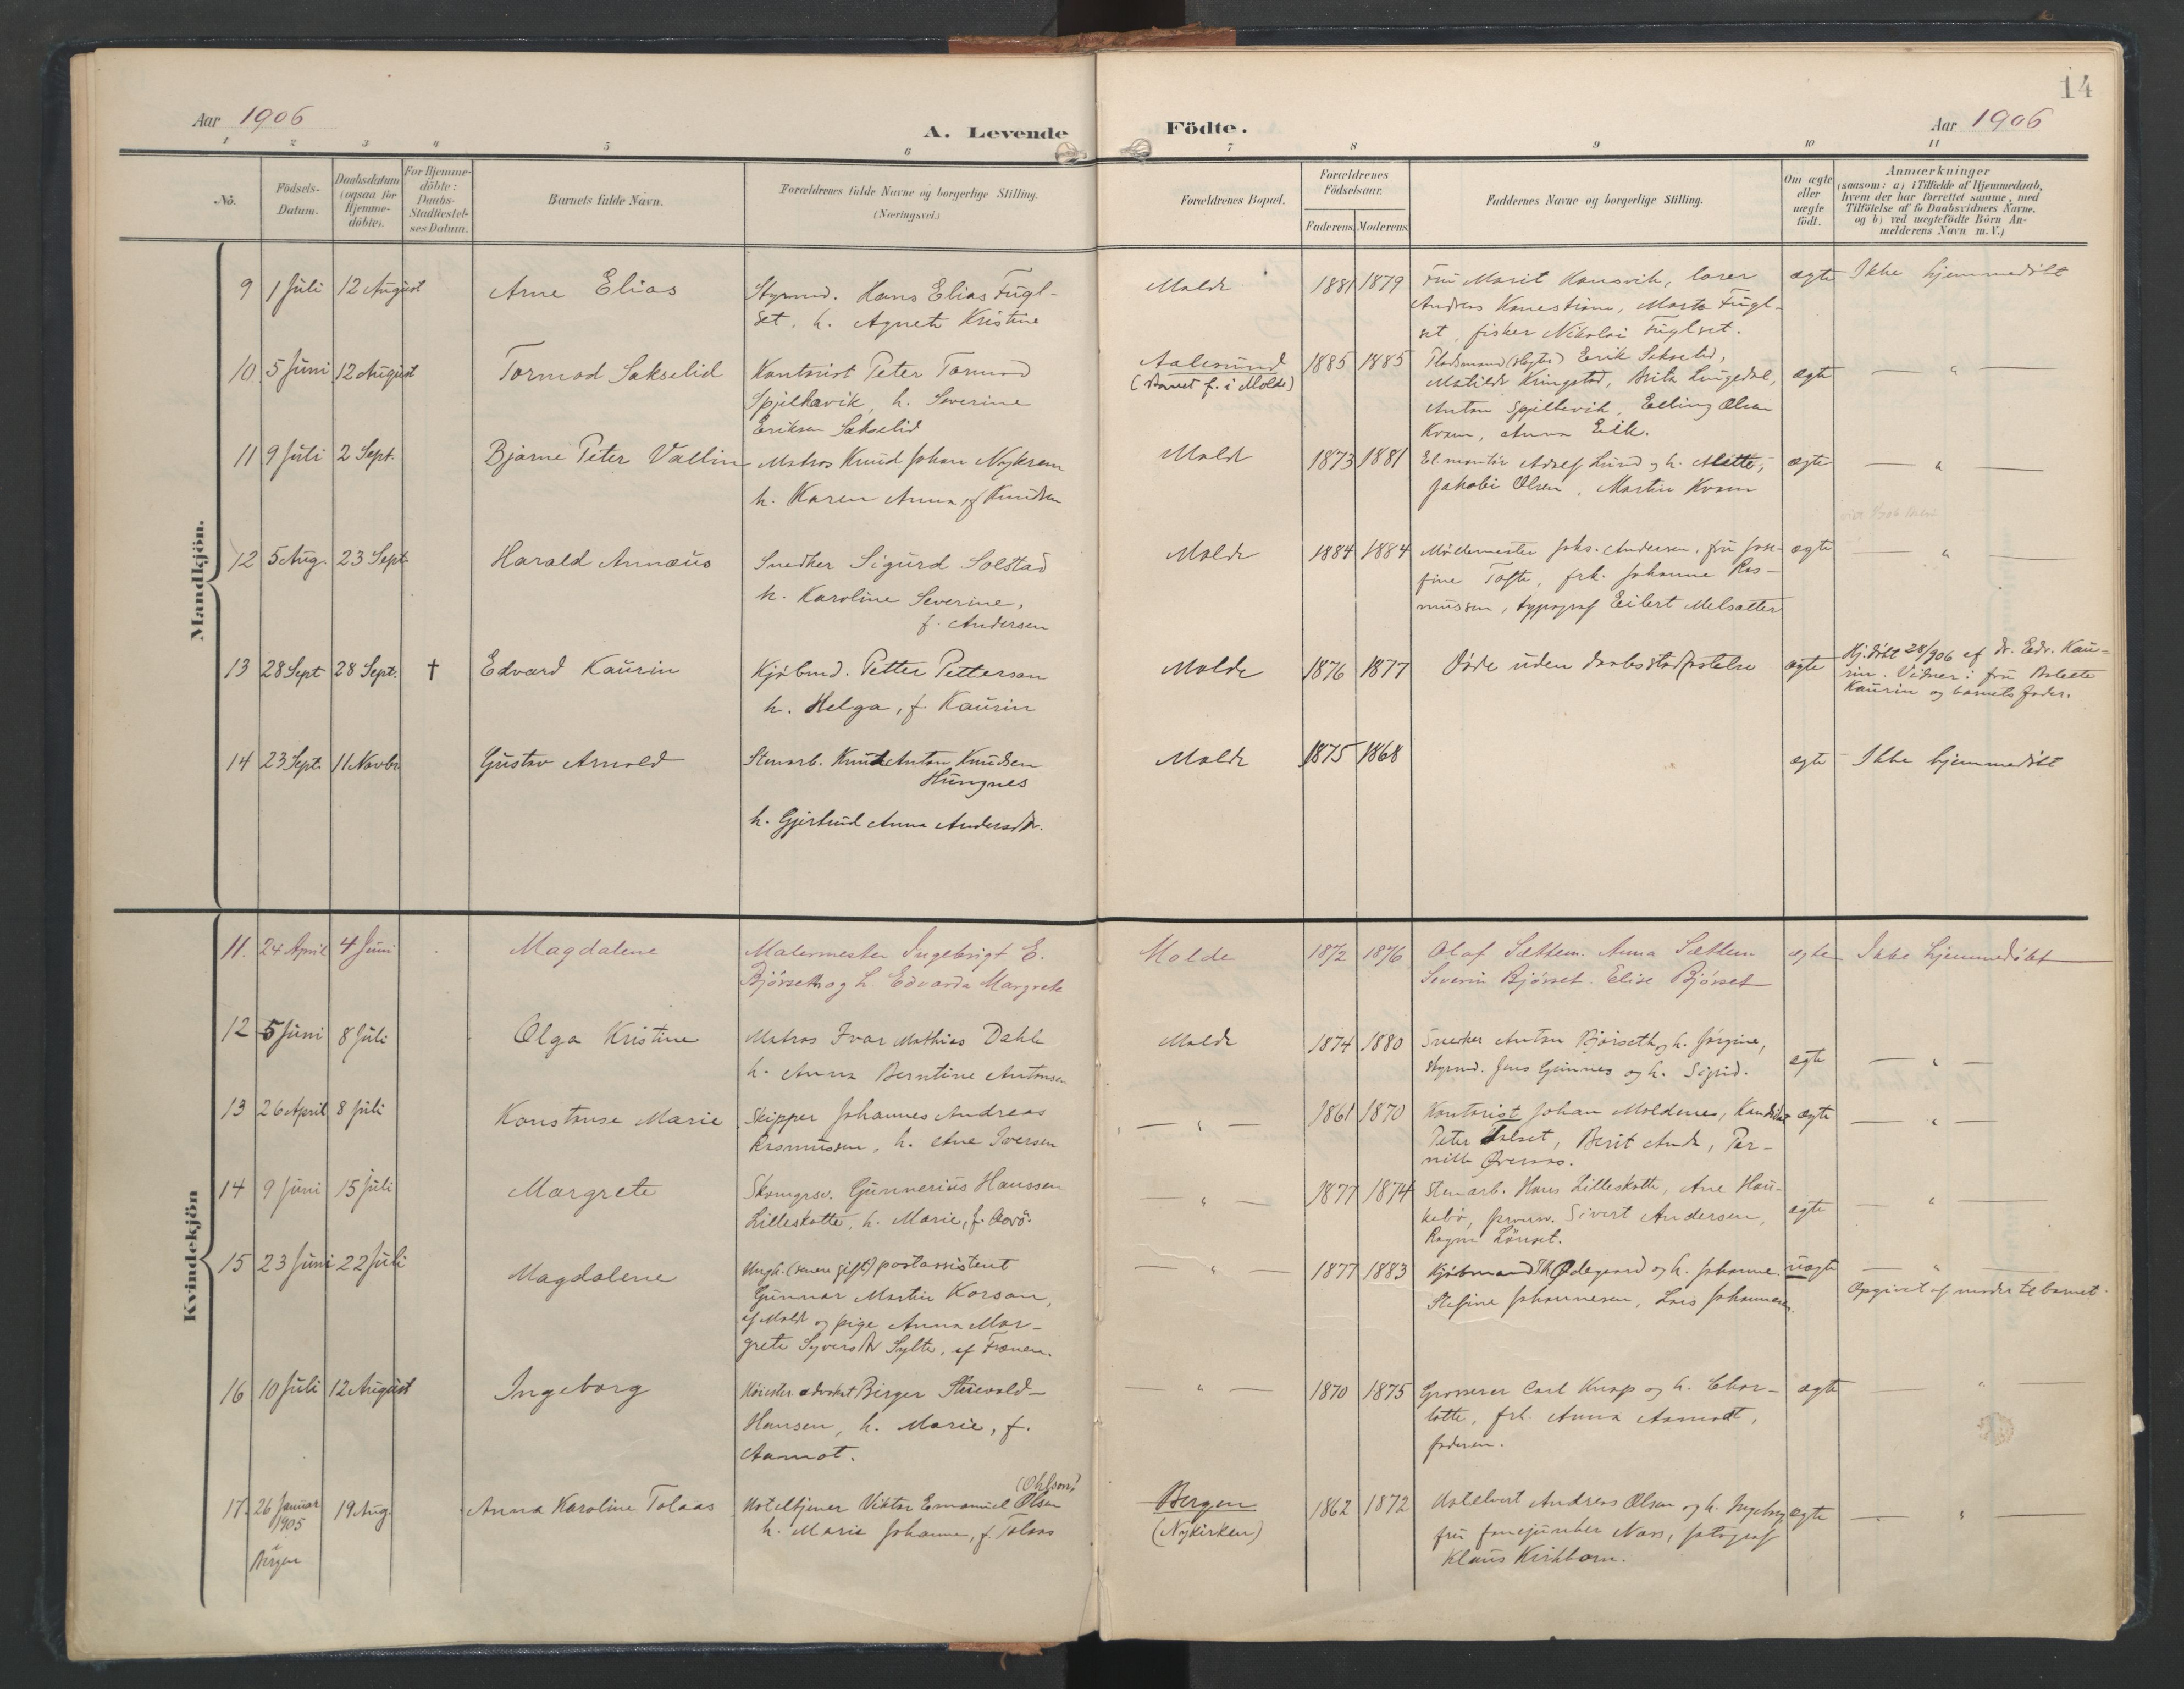 14
Aar 1906
A. Levende Födte.
Aar 1906
1 2 3 4 5 6 7 8 9 10 11
No.
Födsels-Datum.
Daabsdatum (ogsaa for Hjemme-döbte).
For Hjemme-döbte: Daabs-Stadfæstel-ses Datum.
Barnets fulde Navn.
Forældrenes fulde Navne og borgerlige Stilling.
(Næringsvei.)
Forældrenes Bopæl.
Forældrenes Födselsaar.
Faderens. Moderens.
Faddernes Navne og borgerlige Stilling.
Om ægte eller uægte födt.
Anmærkninger
(saasom: a) i Tilfælde af Hjemmedaab,
hvem der har forrettet samme, med
Tilföielse af to Daabsvidners Navne.
og b) ved uægtefödte Börn An-
melderens Navn m. V.)
Mandkjön.
9 1 Juli 12 August Arne Elias
Styrmd. Hans Elias Fugl-
set, h. Agnete Kristine
Molde 1881 1879
Fru Marit
Andreas Marta Fugl-
set, fisker Nikolai Fuglset.
ægte Ikke hjemmedöbt
10 5 Juni 12 August Tormod Sakselid
Kontorist Peter Tormod
Spjelkavik, h. Severine
Eriksen Sakselid
Aalesund
(Barnet f. i Molde)
1885 1885
Erik Sakselid,
Matilde Kringstad, Brita Lingedal,
Anton Spjelkavik, Elling Olsen
Kvam, Anna Eik.
ægte — " —
11 9 Juli 2 Sept. Bjarne Peter Vallin
Matros Knud Johan Nykrem
h. Karen Anna f. Knudsen
Molde 1873 1881
El. montör Adolf Lund og h. Mette,
Jakobi Olsen, Martin Kvam
ægte — " —
12 5 Aug. 23 Sept. Harald Annæus
Snedker Sigurd Solstad
h. Karoline Severine,
f. Andersen
Molde 1884 1884
Möllemester Johs. Andersen, fru Jose-
fine Tofte, frk. Johanne Ras-
mussen, typograf Eilert Melsætter
ægte — " —
13 28 Sept 28 Sept. † Edvard Kaurin
Kjöbmd. Petter Petterson
h. Helga, f. Kaurin
Molde 1876 1877
Döde uden daabsstadfæstelse
ægte
Hj.döbt 28/9 06 af dr. Edv. Kau-
rin. Vidner: fru
Kaurin og barnets fader.
14 23 Sept. 11 Novbr. Gustav Arnold
Stenarb. Knut Anton Knudsen
Hungnes
h. Gjertrud Anna Andersdtr.
Molde 1875 1868
ægte Ikke hjemmedöbt
Kvindekjön
11. 24 April 4 Juni Magdalene
Malermester Ingebrigt E.
Bjørseth og h. Edvarda Margrete
Molde 1872 1876
Olaf Sættem. Anna Sættem
Severin Bjørset. Elise Bjørset
ægte Ikke hjemmedöbt
12 5 Juni 8 Juli Olga Kristine
Matros Ivar Mathias Dahle
h. Anna Berntine Antonsen
Molde 1874 1880
Snedker Anton Bjørseth og h. Jörgine,
styrmd. Jens Gjennes og h. Sigrid.
ægte — " —
13 26 April 8 Juli Konstanse Marie
Skipper Johannes Andreas
Rasmussen, h. Ane Iversen
— " — 1861 1870
Kontorist Johan Moldenes, Kandidat
Peter Talset, Berit Anda, Per-
nille
ægte — " —
14 9 Juni 15 Juli Margrete
Skomgrsv. Gunnerius Hanssen
Lilleskotte, h. Marie,
— " — 1877 1874
Stenarb. Hans Lilleskotte, Ane Hau-
kebö, Sivert Andersen,
Ragna Lönset.
ægte — " —
15 23 Juni 22 Juli Magdalene
Ungk. (senere gift) postassistent
Gunnar Martin Korsan,
af Molde og pige Anna Mar-
grete Syversdtr Sylte, af Frænen.
— " — 1877 1883
Kjöbmand Th Ødegaard og h. Johanne.
Stefine Johannesen, Lars Johannesen.
uægte — " —
Opgivet af moder til barnet.
16 10 Juli 12 August Ingeborg
Höiester. advokat Birger Stuevold-
Hansen, h. Marie, f.
Aamot.
— " — 1870 1875
Grosserer Carl Knap og h. Char-
lotte, frk. Anna Aamodt,
faderen.
ægte — " —
17. 26 Januar 1905 i Bergen 19 Aug. Anna Karoline Tolaas
(Ohlson?)
Hoteltjener Viktor Emanuel Olsen
h. Marie Johanne, f. Tolaas
Bergen
(Nykirken)
1862 1872
Hotelvert Andreas Olsen og h. Ingeborg
fru Næss, fotograf
Klaus Kirkhorn.
ægte — " —